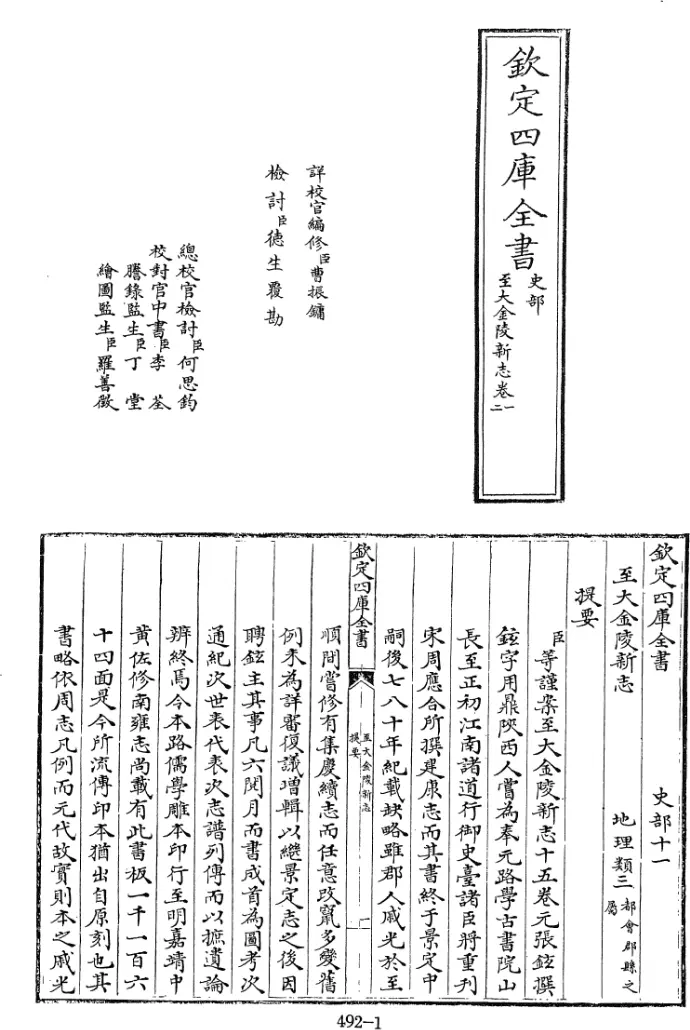 欽定四庫全書
史部
至大金陵新志卷一
二
詳校官編修臣曹振鏞
檢討臣德生覆勘
總校官檢討臣何思鈞
校對官中書臣李荃
謄錄監生臣丁堂
繪圖監生臣羅善徵
欽定四庫全書
史部十一
至大金陵新志
地理類三都會郡縣之
屬
提要
臣等謹案至大金陵新志十五卷元張鉉撰
鉉字用鼎陜西人嘗為奉元路學古書院山
長至正初江南諸道行御史臺諸臣將重刋
宋周應合所撰建康志而其書終于景定中
嗣後七八十年紀載缺略雖郡人戚光於至
欽定四庫全書
至大金陵新志
提要
一
順間嘗修有集慶續志而任意改竄多變舊
例未為詳審復議增輯以繼景定志之後因
聘鉉主其事凡六閱月而書成首為圖考次
通紀次世表代表次志譜列傳而以摭遺論
辨終焉今本路儒學雕本印行至明嘉靖中
黄佐修南雍志尚載有此書板一千一百六
十四面是今所流傳印本猶出自原刻也其
書略依周志凡例而元代故實則本之戚光
492-1